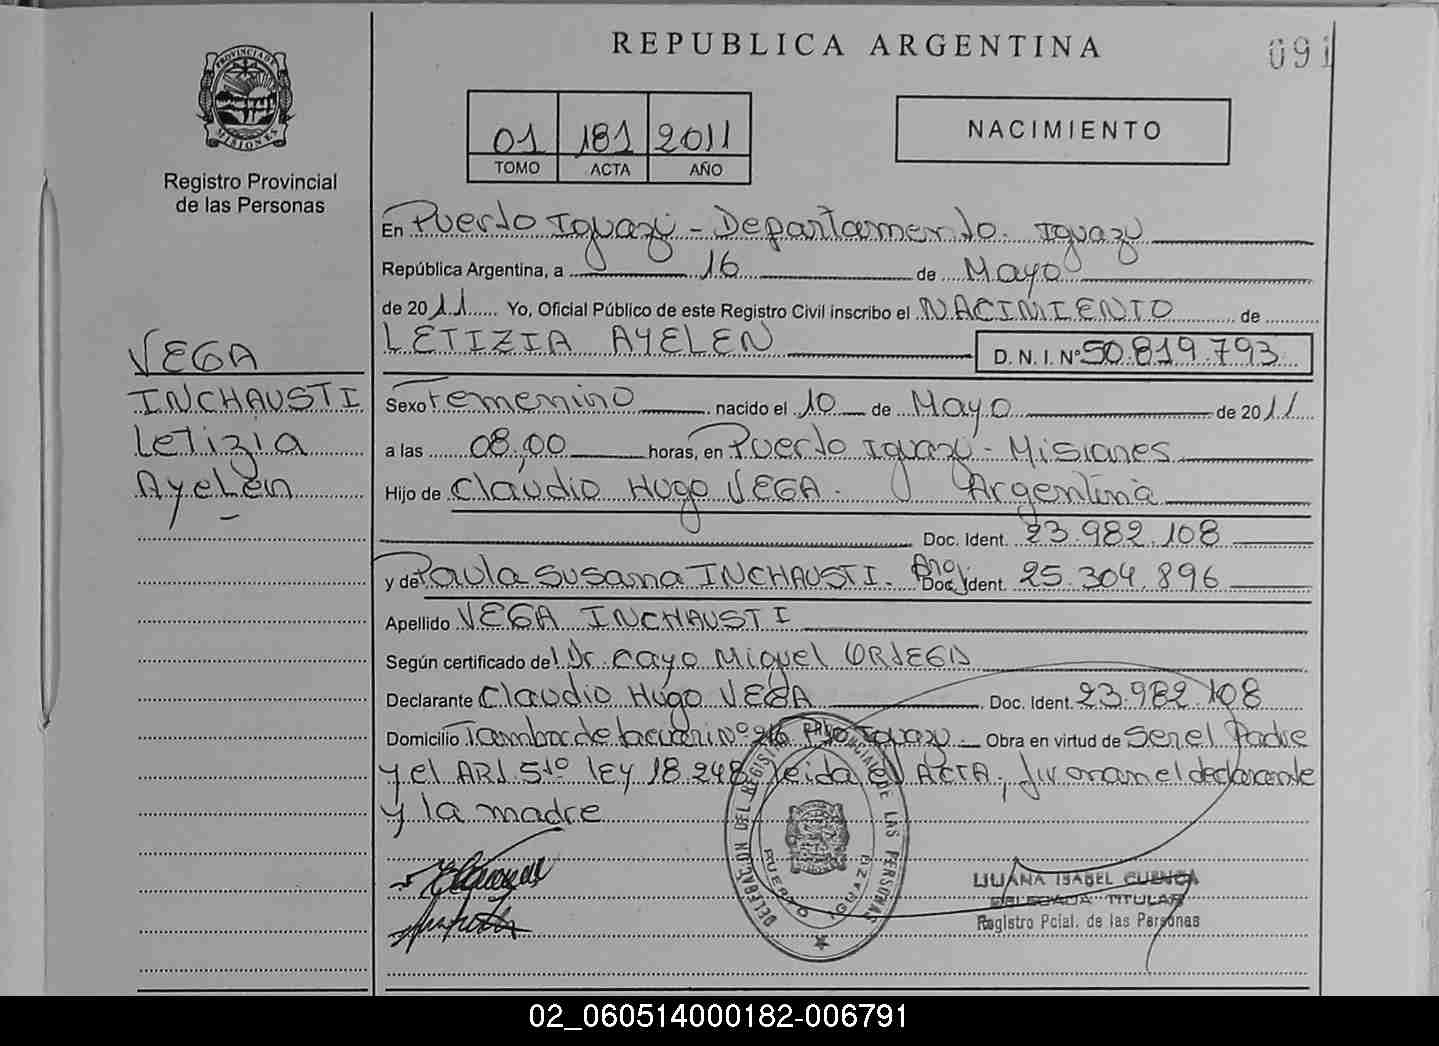 REPUBLICA ARGENTINA
091
PROVINCIA DE
MISIONES
Registro Provincial
de las Personas
01 181 2011
TOMO ACTA AÑO
NACIMIENTO
En Puerto Iguazú - Departamento. Iguazú
República Argentina, a 16 de Mayo
de 2011 Yo, Oficial Público de este Registro Civil inscribo el NACIMIENTO de
LETIZIA AYELEN D. N. I. Nº 50.819.793
VEGA
INCHAUSTI
Letizia
Ayelén
Sexo Femenino nacido el 10 de Mayo de 2011
a las 08,00 horas, en Puerto Iguazú - Misiones
Hijo de Claudio Hugo VEGA. Argentina
Doc. Ident. 23.982.108
y de Paula Susana INCHAUSTI. Arg. Doc. Ident. 25.304.896
Apellido VEGA INCHAUSTI
Según certificado de Dr. Cayo Miguel ORTEGA
Declarante Claudio Hugo VEGA Doc. Ident. 23.982.108
Domicilio Tambor de tacuari nº 216 Pto Iguazú - Obra en virtud de Ser el Padre
y el ART 5to ley 18.248 leida el ACTA, firman el declarante
y la madre
DELEGACION DEL REGISTRO PROVINCIAL DE LAS PERSONAS
PUERTO IGUAZU
LILIANA ISABEL CUENCA
DELEGADA TITULAR
Registro Pcial. de las Personas
02_060514000182-006791